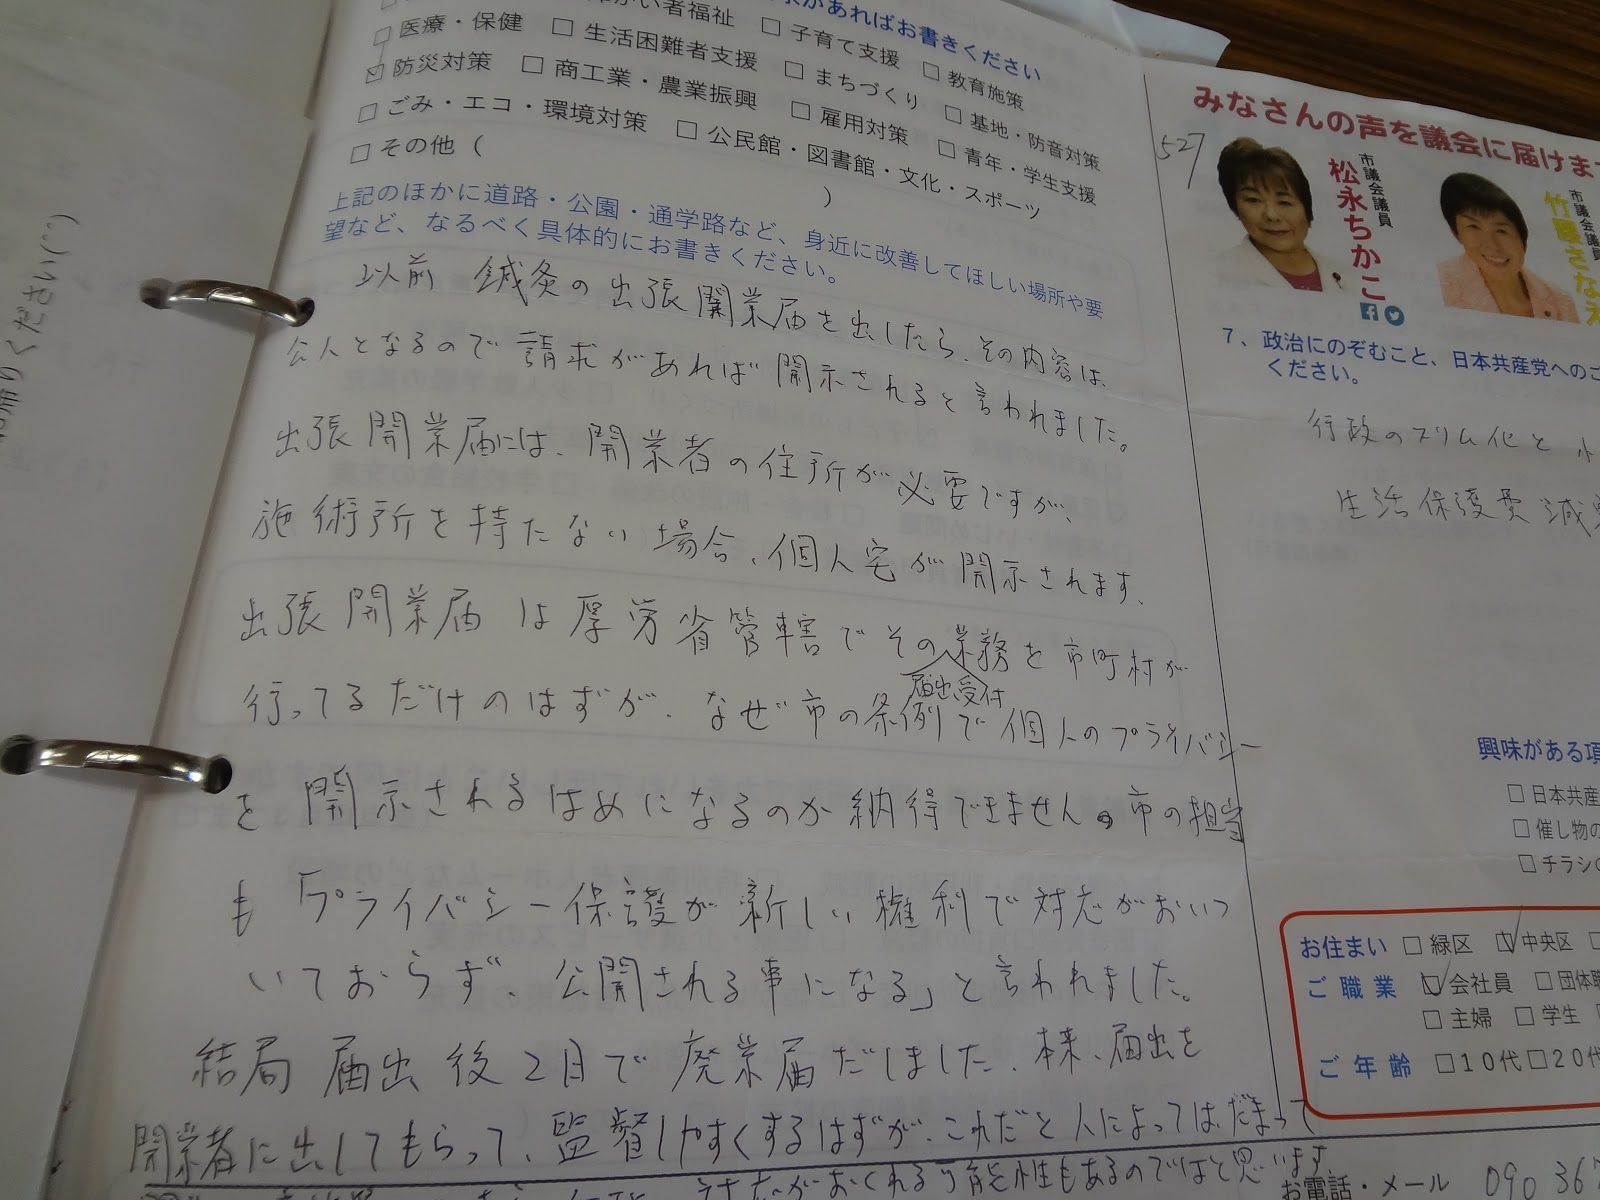 があればお書きください
者福祉 □ 子育て支援 □ 教育施策
□ 医療・保健 □ 生活困難者支援 □ まちづくり □ 基地・防音対策
☑ 防災対策 □ 商工業・農業振興 □ 雇用対策 □ 青年・学生支援
□ ごみ・エコ・環境対策 □ 公民館・図書館・文化・スポーツ
□ その他 ( )
上記のほかに道路・公園・通学路など、身近に改善してほしい場所や要
望など、なるべく具体的にお書きください。
以前 鍼灸の出張開業届を出したら、その内容は、
公人となるので請求があれば開示されると言われました。
出張開業届には、開業者の住所が必要ですが、
施術所を持たない場合、個人宅が開示されます、
出張開業届は厚労省管轄でその業務を市町村が
届出受付
行ってるだけのはずが、なぜ市の条例で個人のプライバシー
を開示されるはめになるのか納得できません。市の担当
も「プライバシー保護が新しい権利で対応がおいつ
いておらず、公開される事になる」と言われました。
結局 届出後2日で廃業届だしました、本来、届出を
開業者に出してもらって、監督しやすくするはずが、これだと人によってはだまって
対応がおくれる可能性もあるのではと思います
527
みなさんの声を議会に届けま
市議会議員
松永ちかこ
市議会議員
竹腰さなえ
7、政治にのぞむこと、日本共産党へのご
ください。
行政のスリム化と
生活保護費減
興味がある項
□ 日本共産
□ 催し物の
□ チラシ
お住まい □ 緑区 ☑ 中央区 □
ご職業 ☑ 会社員 □ 団体職
□ 主婦 □ 学生
ご年齢 □ 10代 □ 20代
お電話・メール 090 36